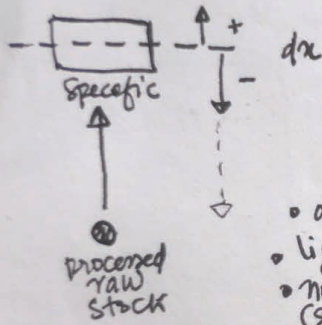 +
dx
-
Specefic
processed
raw
stock